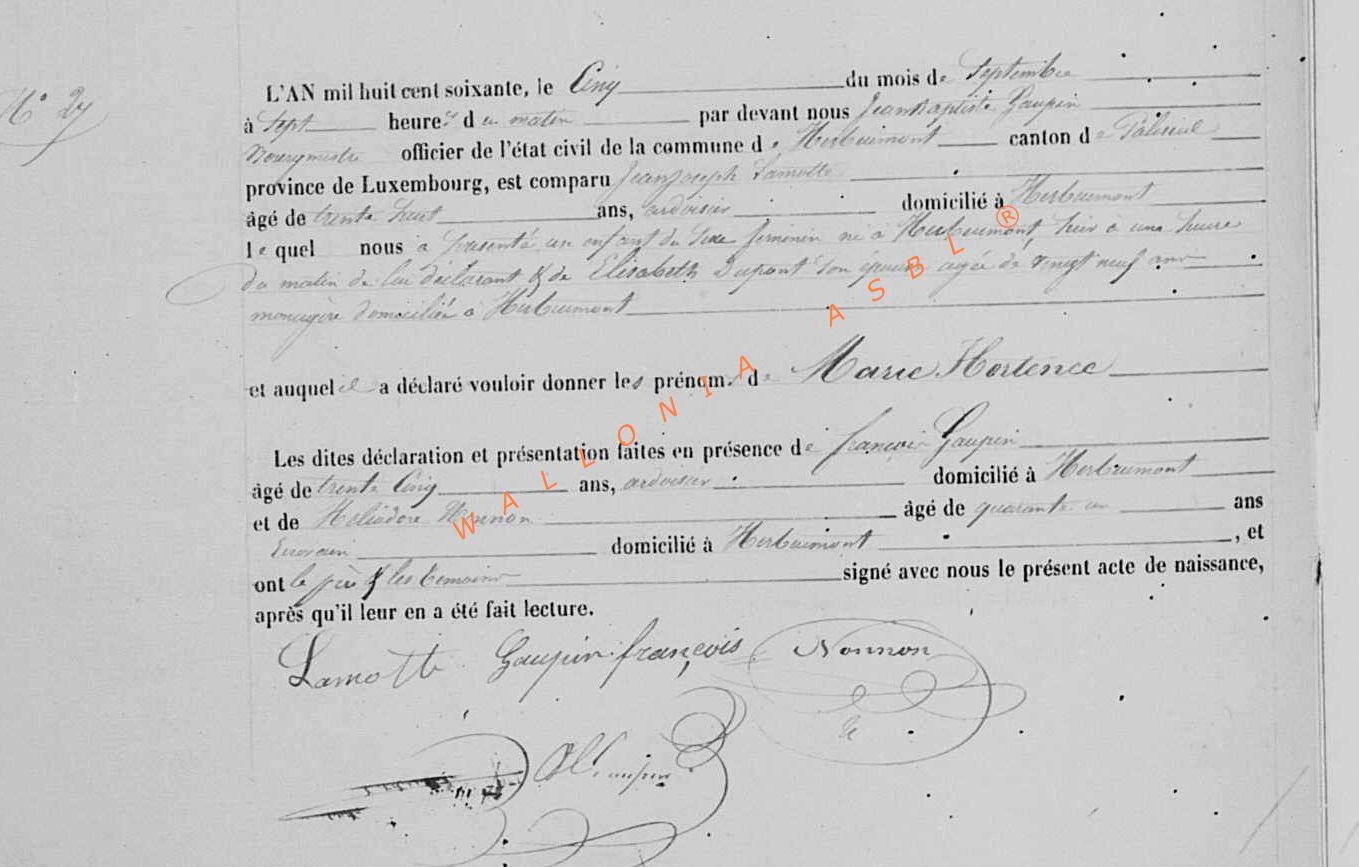 N° 27
L'AN mil huit cent soixante, le Cinq du mois de Septembre
à Sept heures du matin par devant nous Jean Baptiste Gaupin
Bourgmestre officier de l'état civil de la commune de Herbeumont canton de Paliseul
province de Luxembourg, est comparu Jean Joseph Lamotte
âgé de trente huit ans, ardoisier domicilié à Herbeumont
lequel nous a présenté un enfant du sexe feminin né à Herbeumont, hier à une heure
du matin de lui déclarant & de Elisabeth Dupont son épouse agée de vingt neuf ans
menagère domiciliée à Herbeumont
et auquel il a déclaré vouloir donner les prénoms de Marie Hortence
Les dites déclaration et présentation faites en présence de françois Gaupin
âgé de trente Cinq ans, ardoisier domicilié à Herbeumont
et de Héliodore Nonnon âgé de quarante un ans
domicilié à Herbeumont, et
ont le père & les temoins signé avec nous le présent acte de naissance,
après qu'il leur en a été fait lecture.
Lamotte Gaupin françois Nonnon
Gaupin
WALLONIA ASBL ®